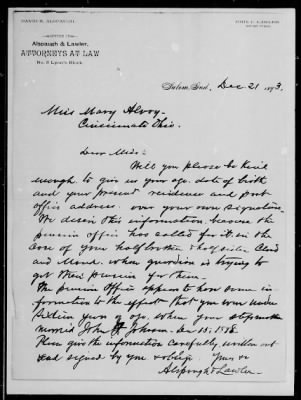 OFFICE OF
Alspaugh & Lawler,
ATTORNEYS AT LAW
No. 2 Lyon's Block
Salem, Ind., Dec 21 1893.
Miss Mary
Cincinnati Ohio.
Dear Miss:-
Will you please be kind
enough to give us your age, date of birth
and your present residence and post
office address over your own signature.
We desire this information, because the
pension office has called for it in the
case of your half brother & half sister
and Maud. whose guardian is trying to
get their pension for them.
The pension Office appears to have some in-
formation to the effect that you were under
sixteen years of age when your stepmother
married John Johnson. Jan 15, 1888.
Please give the information carefully, written out
and signed by you & oblige. Yours &c
Alspaugh & Lawler